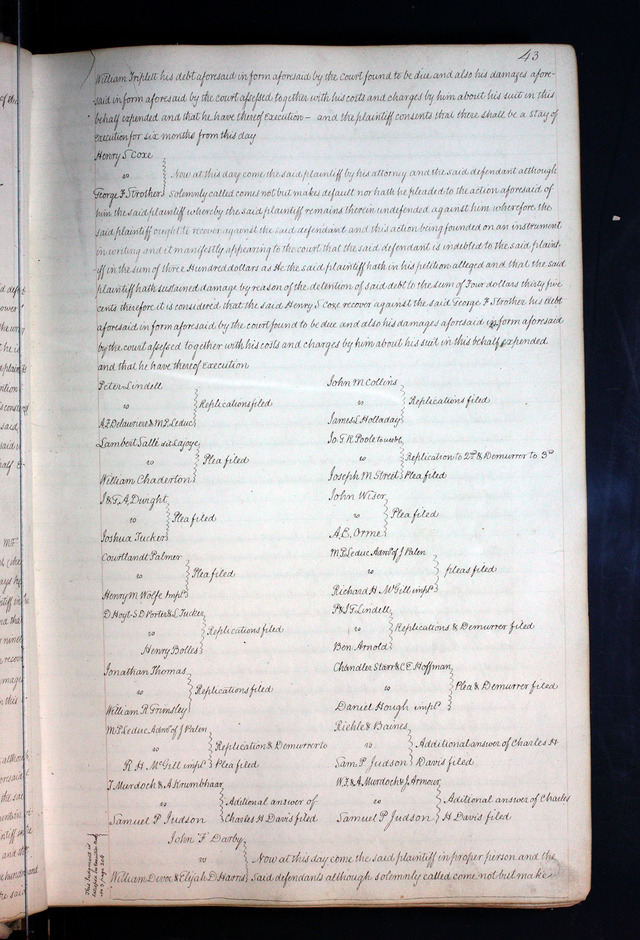 43
William Triplett his debt aforesaid in form aforesaid by the Court found to be due and also his damages afore-
-said in form aforesaid by the court assessed together with his costs and charges by him about his suit in this
behalf expended and that he have thereof Execution – and the plaintiff consents that there shall be a stay of
execution for six months from this day
Henry S Coxe
vs
Now at this day come the said plaintiff by his attorney and the said defendant although
George F Strother solemnly called comes not but makes default nor hath he pleaded to the action aforesaid of
him the said plaintiff whereby the said plaintiff remains therein undefended against him wherefore the
said plaintiff ought to recover against the said defendant and this action being founded on an instrument
in writing and it manifestly appearing to the court that the said defendant is indebted to the said plaint-
-iff in the sum of three Hundred dollars as He the said plaintiff hath in his petition alleged and that the said
plaintiff hath sustained damage by reason of the detention of said debt to the sum of Four dollars thirty five
cents therefore it is considered that the said Henry S Coxe recover against the said George F Strother his debt
aforesaid in form aforesaid by the court found to be due and also his damages aforesaid in form aforesaid
by the court assessed together with his costs and charges by him about his suit in this behalf expended
and that he have thereof Execution
Peter Lindell
vs Replications filed
& M P Leduc
Lambert Salle
vs Plea filed
William Chaderton
J & F A Dwight
vs Plea filed
Joshua Tucker
Courtlandt Palmer
vs Plea filed
Henry M Wolfe Impl
D Hoyt S D Porter & L Tucker
vs Replications filed
Henry Bolles
Jonathan Thomas
vs Replications filed
William R Grimsley
M P Leduc Admr of J Palen
vs Replication & Demurrer to
R H McGill impl Plea filed
T Murdoch & A Krumbhaar
vs Aditional answer of
Samuel P Judson Charles H Davis filed
John M Collins
vs Replications filed
James L Holladay
Jo. G R Poole to use
vs Replication to 2d & Demurrer to 3d
Joseph M Street Plea filed
John Wiser
vs Plea filed
A. E. Orme
M P Leduc Admr of J Palen
vs pleas filed
Richard H McGill impl
P & J Lindell
vs Replications & Demurrer filed
Ben Arnold
Chandler Starr & C E Hoffman
vs Plea & Demurrer filed
Daniel Hough impl
& Baines
vs Additional answer of Charles H
Sam P Judson Davis filed
W F & A Murdoch & J Armour
vs Aditional answer of Charles
Samuel P Judson H Davis filed
John F Darby
vs Now at this day come the said plaintiff in proper person and the
William Devoe & Elijah D Harris Said defendants although solemnly called come not but make